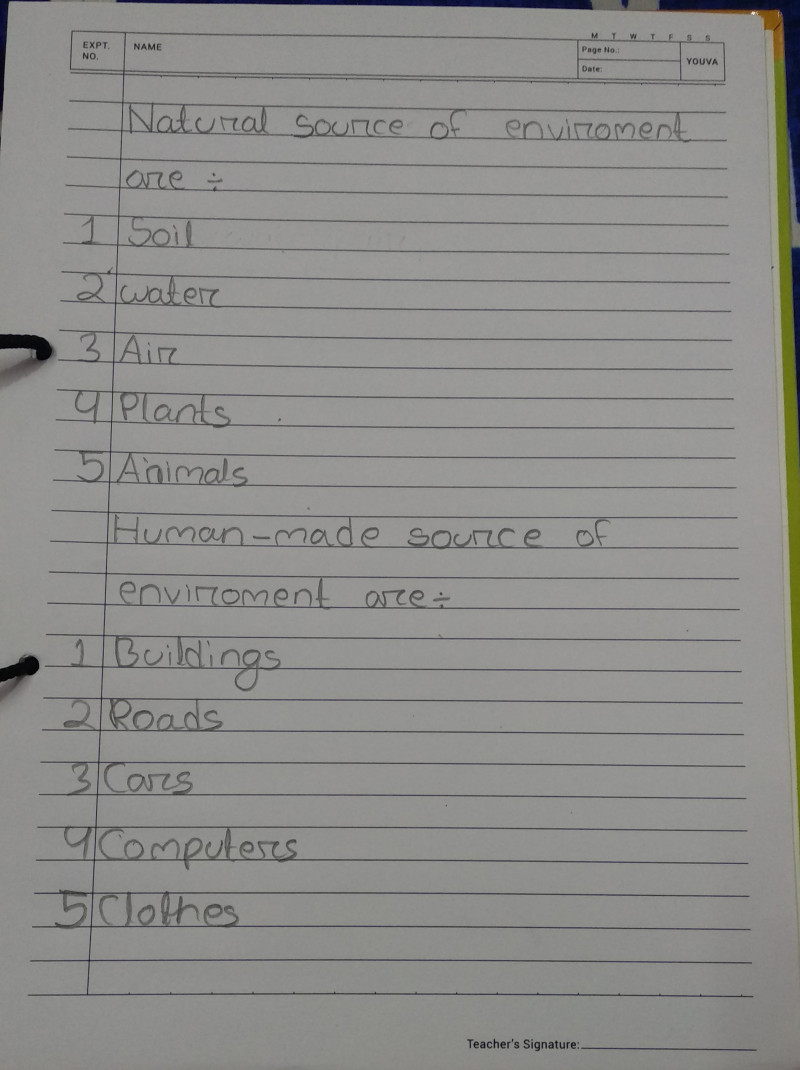 EXPT. NO.
NAME
M T W T F S S
Page No.:
Date:
YOUVA
Natural source of enviroment
are ÷
1 Soil
2 water
3 Air
4 Plants
5 Animals
Human-made source of
enviroment are÷
1 Buildings
2 Roads
3 Cars
4 Computers
5 Clothes
Teacher's Signature: